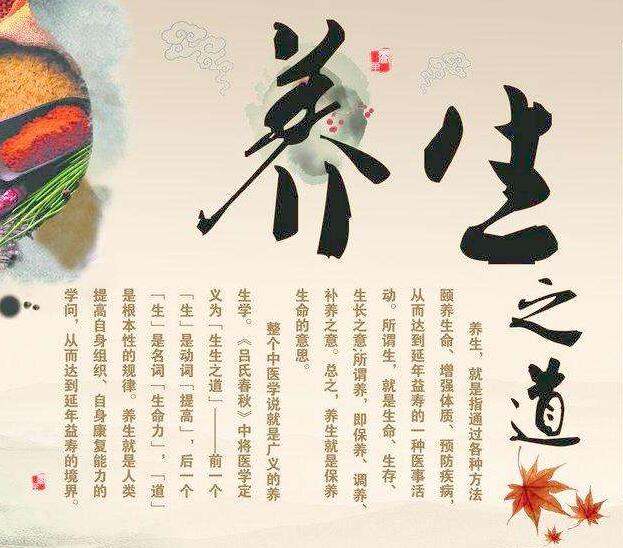 养生
之道
养生，就是指通过各种方法
颐养生命、增强体质、预防疾病，
从而达到延年益寿的一种医事活
动。所谓生，就是生命、生存、
生长之意;所谓养，即保养、调养、
补养之意。总之，养生就是保养
生命的意思。
整个中医学说就是广义的养
生学。《吕氏春秋》中将医学定
义为「生生之道」——前一个
「生」是动词「提高」，后一个
「生」是名词「生命力」，「道」
是根本性的规律。养生就是人类
提高自身组织、自身康复能力的
学问，从而达到延年益寿的境界。